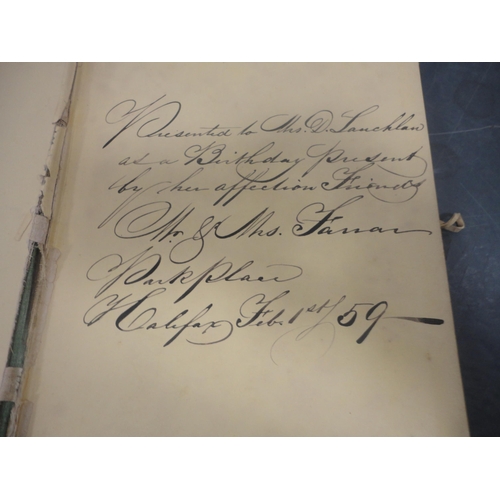 Presented to Mrs. D. Lauchlan
as a Birthday present
by her affection Friends
Mr. & Mrs. Farrar
Park place
Halifax Feb. 1st/59